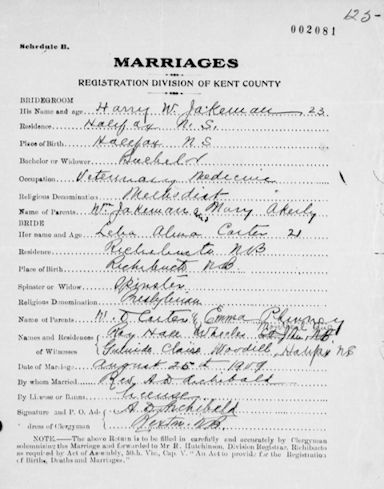 125-
002081
Schedule B.
MARRIAGES
REGISTRATION DIVISION OF KENT COUNTY
BRIDEGROOM
His Name and age Harry W. Jakeman 23
Residence Halifax N. S.
Place of Birth Halifax N S
Bachelor or Widower Bachelor
Occupation Veterinary Medicine
Religious Denomination Methodist
Name of Parents Wm Jakeman & Mary Akerly
BRIDE
Her name and Age Alma Carter 21
Residence Richibucto N B
Place of Birth Richibucto N. B.
Spinster or Widow Spinster
Religious Denomination Presbyterian
Name of Parents W. Carter & Emma
Names and Residences Ray Hall
of Witnesses Claire Woodill, Halifax N S
Date of Marriage August 25th 1909
By whom Married Rev. A. D. Archibald
By License or Banns License
Signature and P. O. Ad- A. D. Archibald
dress of Clergyman Rexton N.B.
NOTE.—The above Return is to be filled in carefully and accurately by Clergyman
solemnizing the Marriage and forwarded to Mr R. Hutchinson, Division Registrar, Richibucto
as required by Act of Assembly, 50th. Vic. Cap. V. "An Act to provide for the Registration
of Births, Deaths and Marriages."